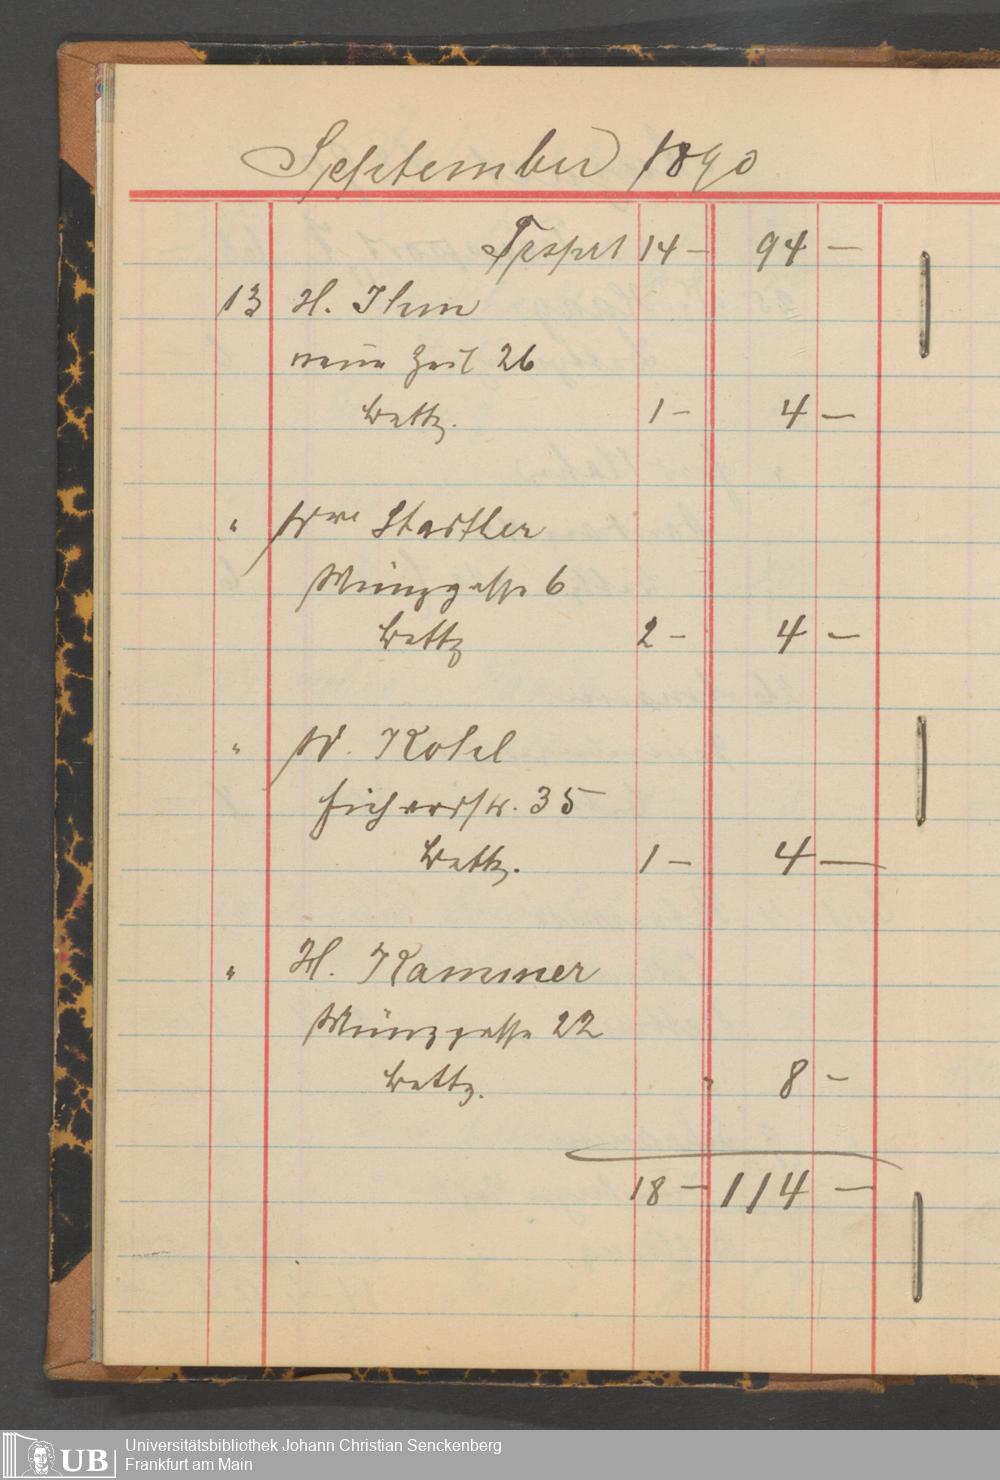 September 1890
Trsprt 14 – 94 –
13 H. Ihm
neue Zeil 26
Bettz. 1 – 4 –
" Wwe Stadtler
Münzgasse 6
Bettz 2 – 4 –
" W. Kohl
35
Bettz. 1 – 4 –
" H. Kammer
Münzgasse 22
Bettz. " 8 –
18 – 114 –
UB
Universitätsbibliothek Johann Christian Senckenberg
Frankfurt am Main